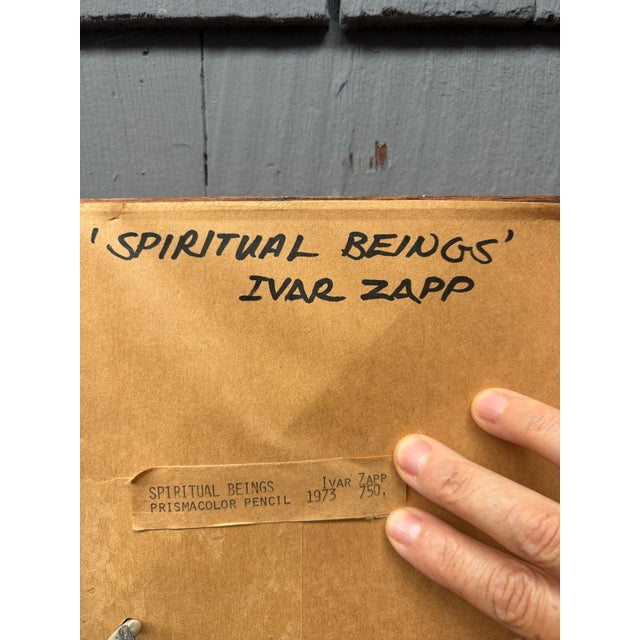 'SPIRITUAL BEINGS'
IVAR ZAPP
SPIRITUAL BEINGS IVAR ZAPP
PRISMACOLOR PENCIL 1973 750.